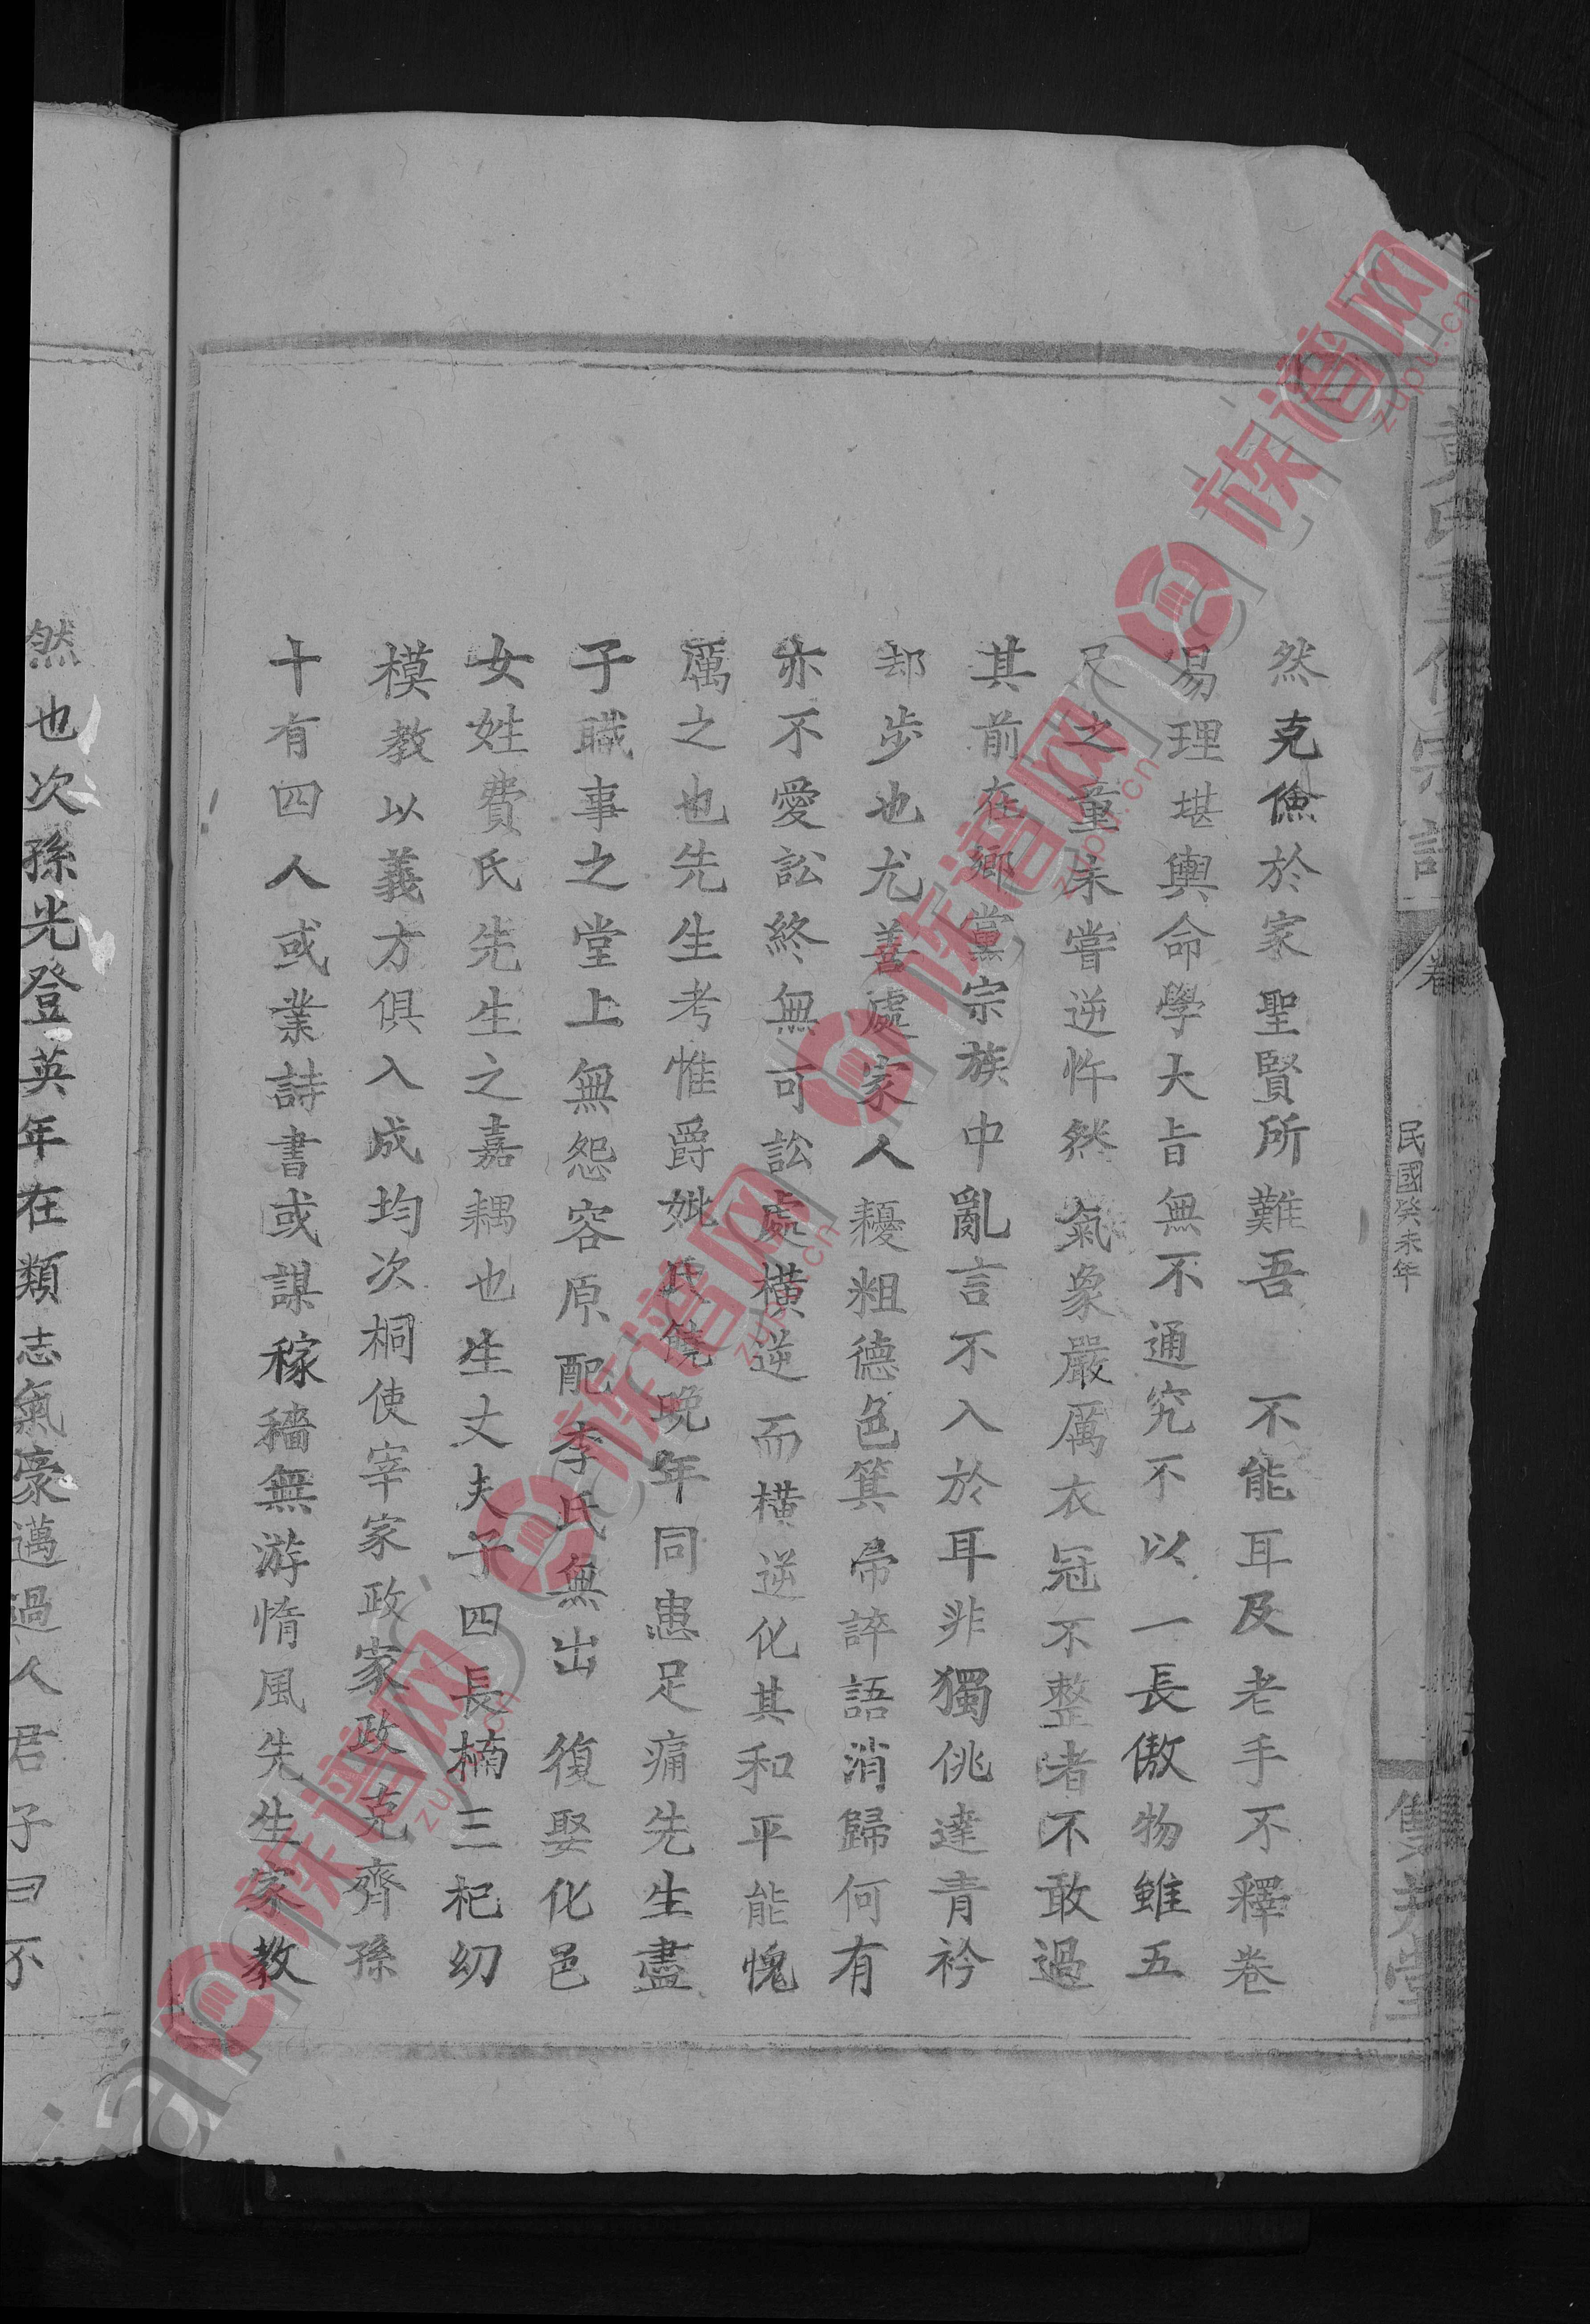 黃氏重修宗譜
卷
民國癸未年
雙井堂
然克儉於家聖賢所難吾 不能耳及老手不釋卷
易理堪輿命學大旨無不通究不以一長傲物雖五
尺之童未嘗逆忤然氣象嚴厲衣冠不整者不敢過
其前在鄉黨宗族中亂言不入於耳非獨佻達青衿
却步也尤善處家人耰粗德色箕帚誶語消歸何有
亦不愛訟終無可訟處橫逆而橫逆化其和平能愧
厲之也先生考惟爵妣氏饒晚年同患足痛先生盡
子職事之堂上無怨容原配李氏無出 復娶化邑
女姓費氏先生之嘉耦也生丈夫子四長楠三杞幼
模教以義方俱入成均次桐使宰家政家政克齊孫
十有四人或業詩書或謀稼穡無游惰風先生家教
然也次孫光登英年在類志氣豪邁過人君子曰不
族谱网
zupu.cn
族谱网
zupu.cn
族谱网
zupu.cn
族谱网
zupu.cn